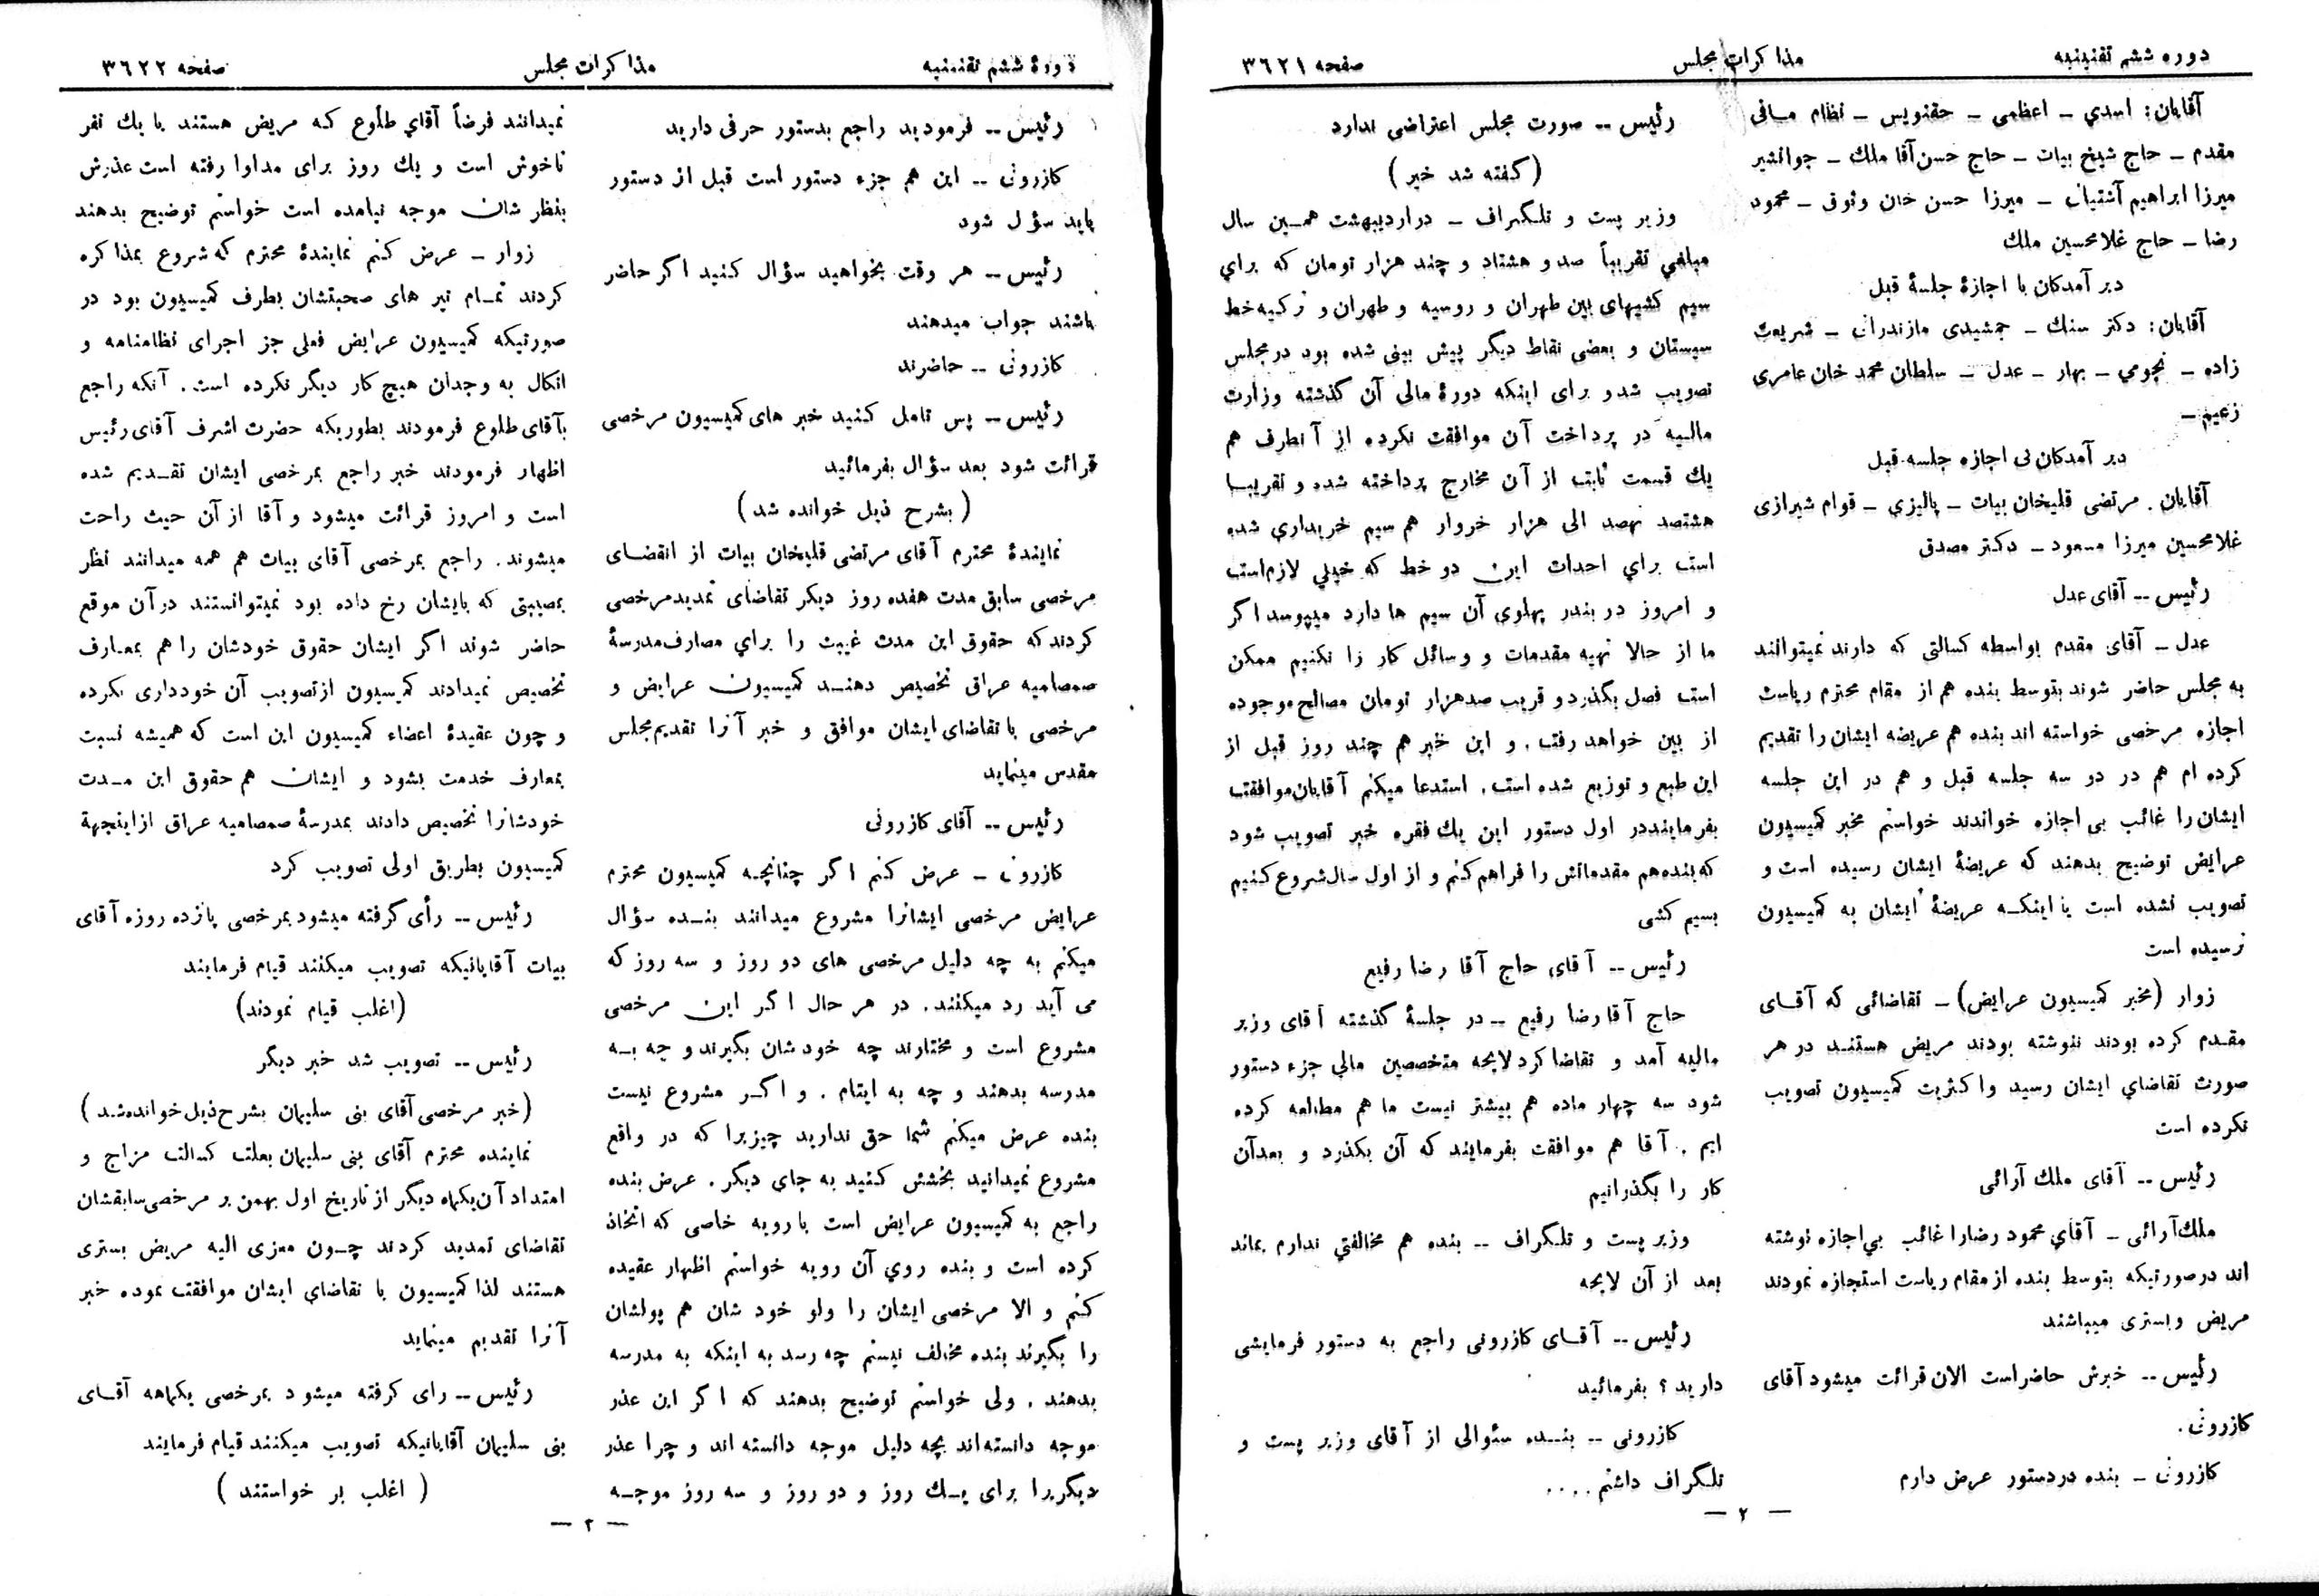 دوره ششم تقنینیه
مذاکرات مجلس
صفحه ۳۶۲۱
آقایان: اسدي – اعظمی – حقنویس – نظام مافی
مقدم – حاج شیخ بیات – حاج حسن آقا ملك – جوانشیر
میرزا ابراهیم آشتیانی – میرزا حسن خان وثوق – محمود
رضا – حاج غلامحسین ملك
دیر آمدکان با اجازۀ جلسۀ قبل
آقایان: دکتر سنك – جمشیدی مازندرانی – شریعت
زاده – نجومي – بهار – عدل – سلطان محمد خان عامری
زعیم –
دیر آمدکان بی اجازه جلسه قبل
آقایان . مرتضی قلیخان بیات – پالیزي – قوام شیرازی
غلامحسین میرزا مسعود – دکتر مصدق
رئیس -- آقای عدل
عدل – آقای مقدم بواسطه کسالتی که دارند نمیتوانند
به مجلس حاضر شوند بتوسط بنده هم از مقام محترم ریاست
اجازه مرخصی خواسته اند بنده هم عریضه ایشان را تقدیم
کرده ام هم در دو سه جلسه قبل و هم در این جلسه
ایشان را غائب بی اجازه خواندند خواستم مخبر کمیسیون
عرایض توضیح بدهند که عریضۀ ایشان رسیده است و
تصویب نشده است یا اینکه عریضۀ ایشان به کمیسیون
نرسیده است
زوار (مخبر کمیسیون عرایض) – تقاضائی که آقای
مقدم کرده بودند ننوشته بودند مریض هستند در هر
صورت تقاضاي ایشان رسید و اکثریت کمیسیون تصویب
نکرده است
رئیس -- آقای ملك آرائی
ملك آرائی – آقاي محمود رضارا غائب بي اجازه نوشته
اند در صورتیکه بتوسط بنده از مقام ریاست استجازه نمودند
مریض و بستری میباشند
رئیس -- خبرش حاضر است الان قرائت میشود آقای
کازرونی .
کازرونی – بنده در دستور عرض دارم
رئیس -- صورت مجلس اعتراضی ندارد
(گفته شد خیر)
وزیر پست و تلگراف – در اردیبهشت همین سال
مبلغي تقریباً صد و هشتاد و چند هزار تومان که براي
سیم کشیهای بین طهران و روسیه و طهران و ترکیه خط
سیستان و بعضی نقاط دیگر پیش بینی شده بود در مجلس
تصویب شد و برای اینکه دورۀ مالی آن گذشته وزارت
مالیه در پرداخت آن موافقت نکرده از آنطرف هم
یك قسمت ثابت از آن مخارج پرداخته شده و تقریبا
هشتصد نهصد الی هزار خروار هم سیم خریداری شده
است براي احداث این دو خط که خیلي لازم است
و امروز در بندر پهلوی آن سیم ها دارد میپوسد اگر
ما از حالا تهیه مقدمات و وسائل کار را نکنیم ممکن
است فصل بگذرد و قریب صدهزار تومان مصالح موجوده
از بین خواهد رفت . و این خبر هم چند روز قبل از
این طبع و توزیع شده است . استدعا میکنم آقایان موافقت
بفرمایند در اول دستور این یك فقره خبر تصویب شود
که بنده هم مقدماتش را فراهم کنم و از اول سال شروع کنیم
بسیم کشی
رئیس -- آقای حاج آقا رضا رفیع
حاج آقا رضا رفیع -- در جلسۀ گذشته آقای وزیر
مالیه آمد و تقاضا کرد لایحه متخصصین مالی جزء دستور
شود سه چهار ماده هم بیشتر نیست ما هم مطالعه کرده
ایم . آقا هم موافقت بفرمایند که آن بکذرد و بعد آن
کار را بگذرانیم
وزیر پست و تلگراف -- بنده هم مخالفتي ندارم بماند
بعد از آن لایحه
رئیس -- آقای کازرونی راجع به دستور فرمایشی
دارید ؟ بفرمائید
کازرونی -- بنده سئوالی از آقای وزیر پست و
تلگراف داشتم ....
— ۲ —
دورۀ ششم تقنینیه
مذاکرات مجلس
صفحه ۳۶۲۲
رئیس -- فرمودید راجع بدستور حرفی دارید
کازرونی -- این هم جزء دستور است قبل از دستور
باید سؤال شود
رئیس -- هر وقت بخواهید سؤال کنید اگر حاضر
باشند جواب میدهند
کازرونی -- حاضرند
رئیس -- پس تامل کنید خبر های کمیسیون مرخصی
قرائت شود بعد سؤال بفرمائید
(بشرح ذیل خوانده شد)
نمایندۀ محترم آقای مرتضی قلیخان بیات از انقضای
مرخصی سابق مدت هفده روز دیگر تقاضای تمدید مرخصی
کردند که حقوق این مدت غیبت را براي مصارف مدرسۀ
صمصامیه عراق تخصیص دهند کمیسیون عرایض و
مرخصی با تقاضای ایشان موافق و خبر آنرا تقدیم مجلس
مقدس مینماید
رئیس -- آقای کازرونی
کازرونی – عرض کنم اگر چنانچه کمیسیون محترم
عرایض مرخصی ایشانرا مشروع میدانند بنده سؤال
میکنم به چه دلیل مرخصی های دو روز و سه روز که
می آید رد میکنند . در هر حال اگر این مرخصی
مشروع است و مختارند چه خودشان بگیرند و چه به
مدرسه بدهند و چه به ایتام . و اگر مشروع نیست
بنده عرض میکنم شما حق ندارید چیزیرا که در واقع
مشروع نمیدانید بخشش کنید به جای دیگر . عرض بنده
راجع به کمیسیون عرایض است با رویه خاصی که اتخاذ
کرده است و بنده روي آن رویه خواستم اظهار عقیده
کنم و الا مرخصی ایشان را ولو خود شان هم پولشان
را بگیرند بنده مخالف نیستم چه رسد به اینکه به مدرسه
بدهند . ولی خواستم توضیح بدهند که اگر این عذر
موجه دانسته اند بچه دلیل موجه دانسته اند و چرا عذر
دیگریرا برای یك روز و دو روز و سه روز موجه
نمیدانند فرضاً آقاي طلوع که مریض هستند یا یك نفر
ناخوش است و یك روز برای مداوا رفته است عذرش
بنظر شان موجه نیامده است خواستم توضیح بدهند
زوار – عرض کنم نمایندۀ محترم که شروع بمذاکره
کردند تمام تیر های صحبتشان بطرف کمیسیون بود در
صورتیکه کمیسیون عرایض فعلی جز اجرای نظامنامه و
اتکال به وجدان هیچ کار دیگر نکرده است . آنکه راجع
بآقای طلوع فرمودند بطوریکه حضرت اشرف آقای رئیس
اظهار فرمودند خبر راجع بمرخصی ایشان تقدیم شده
است و امروز قرائت میشود و آقا از آن حیث راحت
میشوند . راجع بمرخصی آقای بیات هم همه میدانند نظر
بمصیبتی که بایشان رخ داده بود نمیتوانستند در آن موقع
حاضر شوند اگر ایشان حقوق خودشان را هم بمعارف
تخصیص نمیدادند کمیسیون از تصویب آن خودداری نکرده
و چون عقیدۀ اعضاء کمیسیون این است که همیشه نسبت
بمعارف خدمت بشود و ایشان هم حقوق این مدت
خودشانرا تخصیص دادند بمدرسۀ صمصامیه عراق از اینجهة
کمیسیون بطریق اولی تصویب کرد
رئیس -- رأی گرفته میشود بمرخصی پانزده روزه آقای
بیات آقایانیکه تصویب میکنند قیام فرمایند
(اغلب قیام نمودند)
رئیس -- تصویب شد خبر دیگر
(خبر مرخصی آقای بنی سلیمان بشرح ذیل خوانده شد)
نماینده محترم آقای بنی سلیمان بعلت کسالت مزاج و
امتداد آن یکماه دیگر از تاریخ اول بهمن بر مرخصی سابقشان
تقاضای تمدید کردند چون معزی الیه مریض بستری
هستند لذا کمیسیون با تقاضاي ایشان موافقت نموده خبر
آنرا تقدیم مینماید
رئیس -- رای گرفته میشود بمرخصی یکماهه آقای
بنی سلیمان آقایانیکه تصویب میکنند قیام فرمایند
( اغلب بر خواستند )
— ۲ —